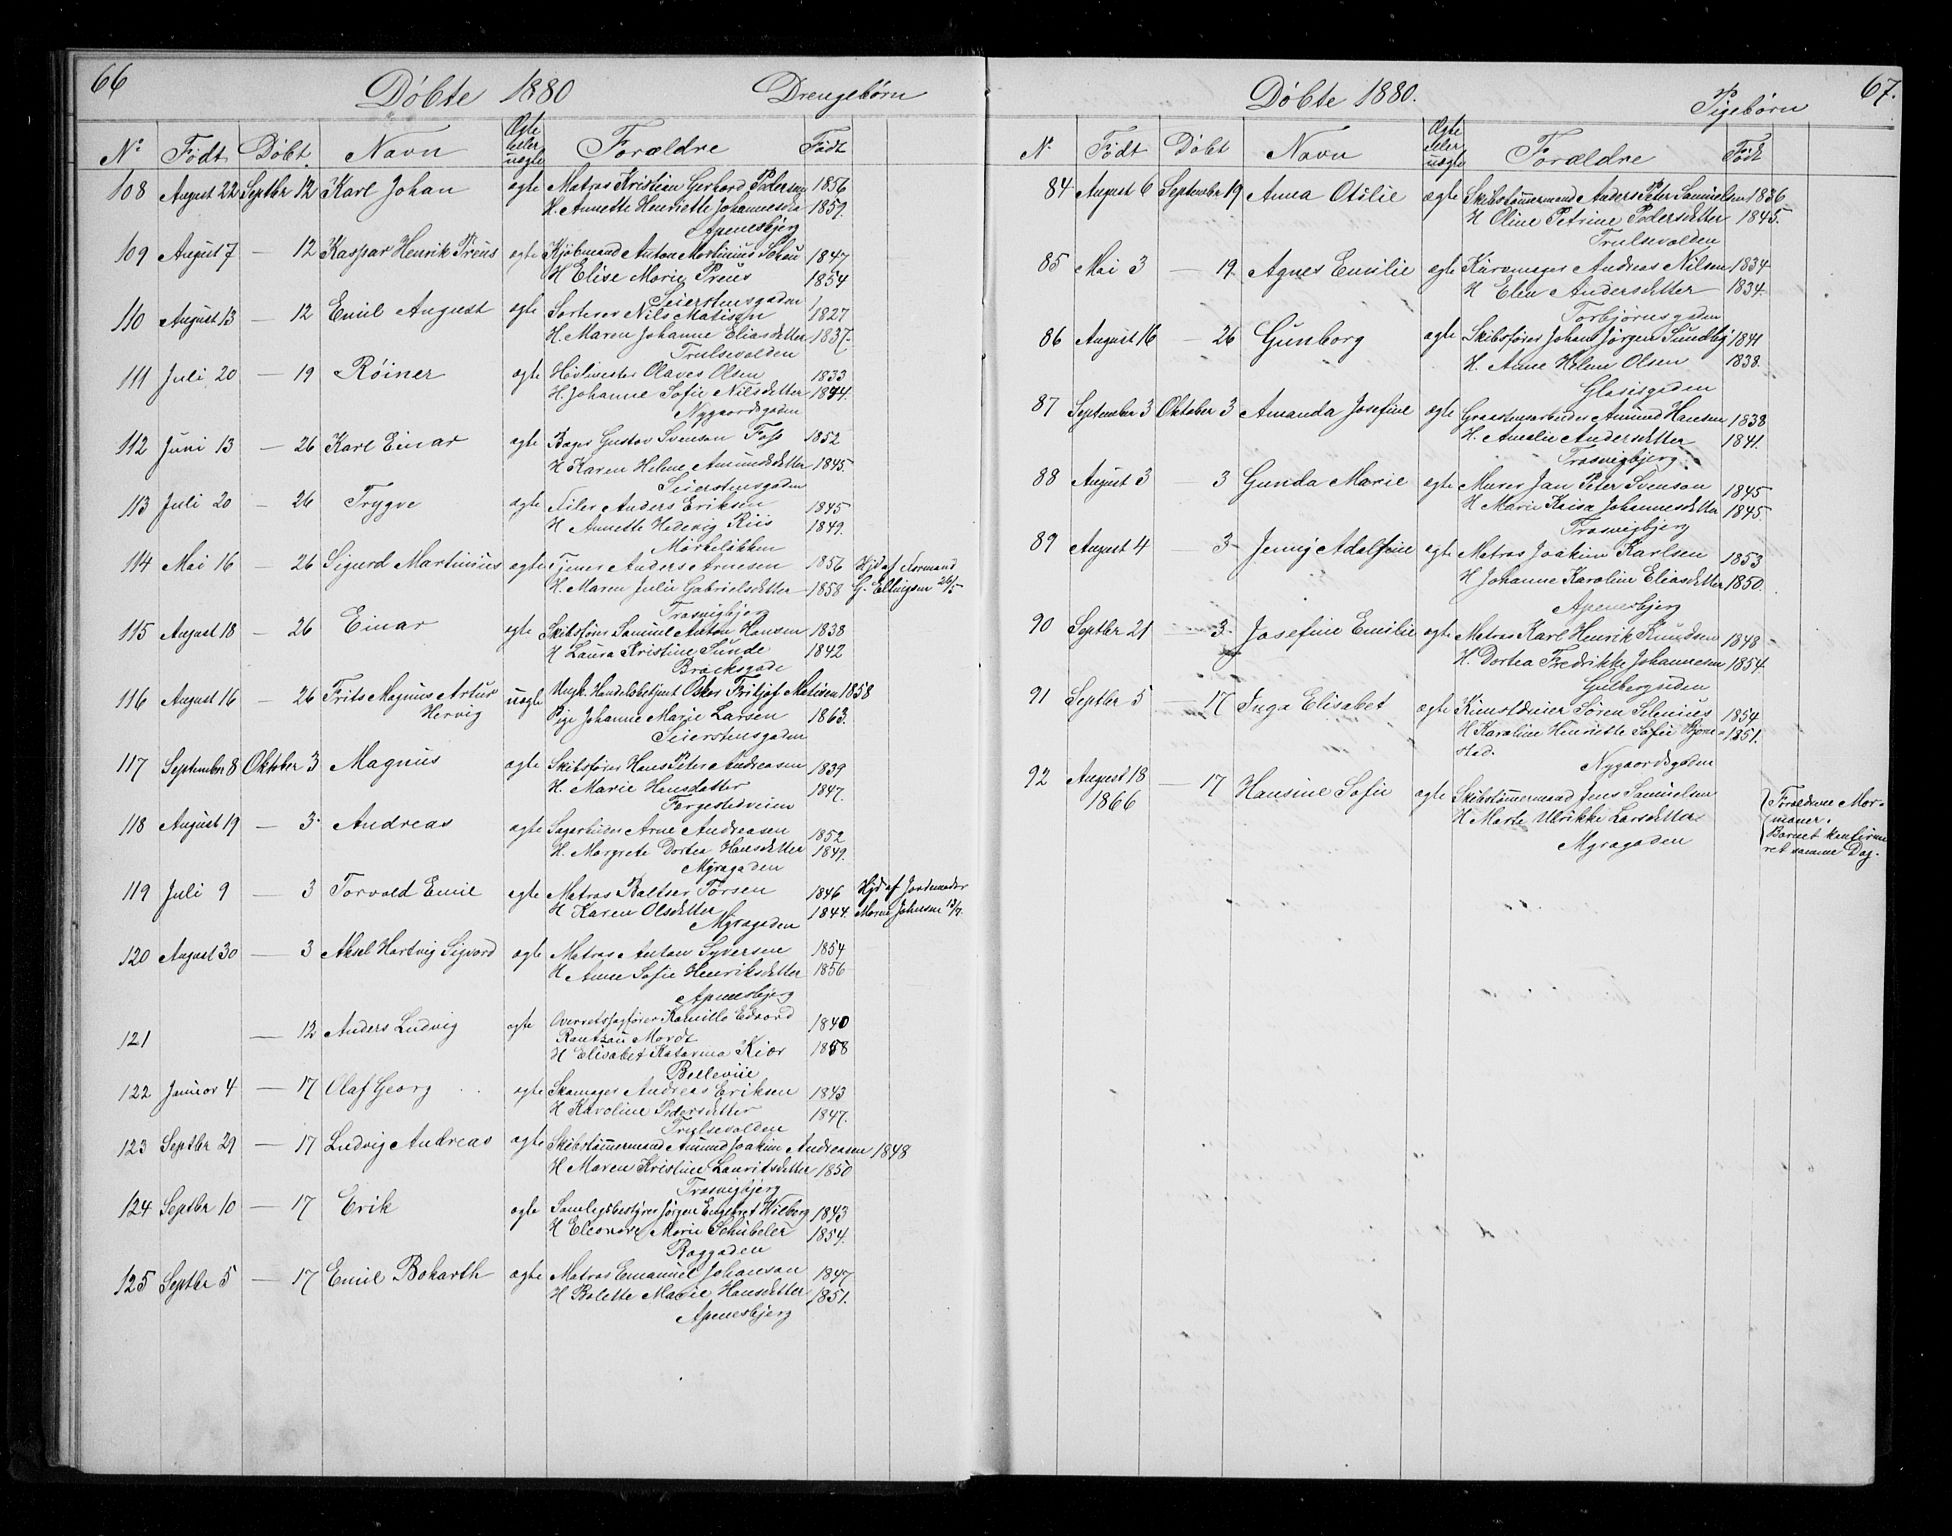 66
Döbte 1880 Drengebörn
No Födt Döbt Navn Ægte eller uægte Forældre Födt
108 August 22 Septbr 12 Karl Johan ægte Matros Kristian Gerhard Pedersen 1856
H. Annette Henriette Johannesda 1859.
Apenesbjerg
109 August 7 — 12 Kaspar Henrik Preus ægte Kjöbmand Anton Martinius Schou 1847
H Elise Marie Preus 1854
Seierstensgaden
110 August 13 — 12 Emil August ægte Sorterer Nils Matisen 1827
H. Maren Johanne Eliasdatter 1837.
Trulsevolden
111 Juli 20 — 19 Röiner ægte Hövlmester Olaves Olsen 1833
H. Johanne Sofie Nilsdatter 1844.
Nygaardsgaden
112 Juni 13 — 26 Karl Einar ægte Bager Gustav Svenson Foss 1852
H Karen Helene Amundsdatter 1845.
Seierstensgaden
113 Juli 20 — 26 Trygve ægte Filer Anders Eriksen 1845
H Annette Hedevig Riis 1849.
Mörkelökken
114 Mai 16 — 26 Sigurd Martinius ægte Tjener Anders Arnesen 1856 Hjd af Normand
H. Maren Julie Gabrielsdatter 1858 G. Ellingsen 26/5
Trosvigbjerg
115 August 18 — 26 Einar ægte Skibsförer Samuel Anton Hansen 1838
H Laura Kristine Sunde 1842
Brocksgade
116 August 16 — 26 Frits Magnus Artur uægte Ungk. Handelsbetjent Oskar Fritjof Matisen 1858
Hervig Pige Johanne Marie Larsen 1863.
Seierstensgaden
117 September 8 Oktober 3 Magnus ægte Skibsförer Hans Peter Andreasen 1839
H. Marie Hansdatter 1847.
Færgestedveien
118 August 19 — 3 Andreas ægte Arne Andreasen 1852
H. Margrete Dortea Hansdatter 1849.
Myragaden
119 Juli 9 — 3 Torvald Emil ægte Matros Baltser Törsen 1846 Hjd af Jordemoder
H Karen Olsdatter 1844. Johnsen 13/7.
Myragaden
120 August 30 — 3 Aksel Hartvig Sigvard ægte Matros Anton Syversen 1854
H Anne Sofie Henriksdatter 1856
Apenesbjerg
121 — 12 Anders Ludvig ægte Overretssagförer Kamillo Edvard 1840
Rantzau Mordt
H Elisabet Katarina Kiær 1858
Bellevue
122 Januar 4 — 17 Olaf Georg ægte Skomager Andreas Eriksen 1843
H Karoline Pedersdatter 1847.
Trulsevolden
123 Septbr 29 — 17 Ludvig Andreas ægte Skibstömmermand Amund Joakim Andreasen 1848
H Maren Kristine Lauritsdatter 1850
Trosvigbjerg
124 Septbr 10 — 17 Erik ægte Samlagsbestyrer Jörgen Engebret Wiborg 1843
H Eleonore Marie Schübeler 1854.
Raggaden
125 Septbr 5 — 17 Emil Bokarth ægte Matros Emanuel Johanson 1847
H Bolette Marie Hansdatter 1851.
Apenesbjerg
67.
Döbte 1880. Pigebörn
N. Födt Döbt Navn Ægte eller uægte Forældre Födt
84 August 6 September 19 Anna Otilie ægte Skibstömmermand Anders Peter Samuelsen 1836
H Oline Petrine Pedersdatter 1845.
Trulsevolden
85 Mai 3 — 19 Agnes Emilie ægte Kurvmager Andreas Nilsen 1834
H Elen Andersdatter 1834.
Torbjörnsgaden
86 August 16 — 26 Gunborg ægte Skibsförer Johan Jörgen Sundby 1841
H. Anne Helene Olsen 1838.
Glasisgaden
87 September 3 Oktober 3 Amanda Josefine ægte Graastensarbeider Amund Hansen 1838
H. Amalie Andersdatter 1841.
Trosvigbjerg
88 August 3 — 3 Gunda Marie ægte Murer Jan Peter Svenson 1845
H Marie Kaisa Johannesdatter 1845.
Trosvigbjerg
89 August 4 — 3 Jenny Adolfine ægte Matros Joakim Karlsen 1853
H Johanne Karoline Eliasdatter 1850.
Apenesbjerg
90 Septbr 21 — 3. Josefine Emilie ægte Matros Karl Henrik Knudsen 1848
H. Dortea Fredrikke Johannesen 1854.
Gulbergsiden
91 Septbr 5 — 17 Inga Elisabet ægte Kunstdreier Sören Selenius 1854
H Karoline Henriette Sofie Bjöne- 1851.
stad.
Nygaardsgaden
92 August 18 — 17 Hansine Sofie ægte Skibstömmermand Jens Samuelsen Forældrene Mor-
1866 H Marte Ulrikke Larsdatter moner.
Myragaden Barnet konfirme
ret samme Dag.